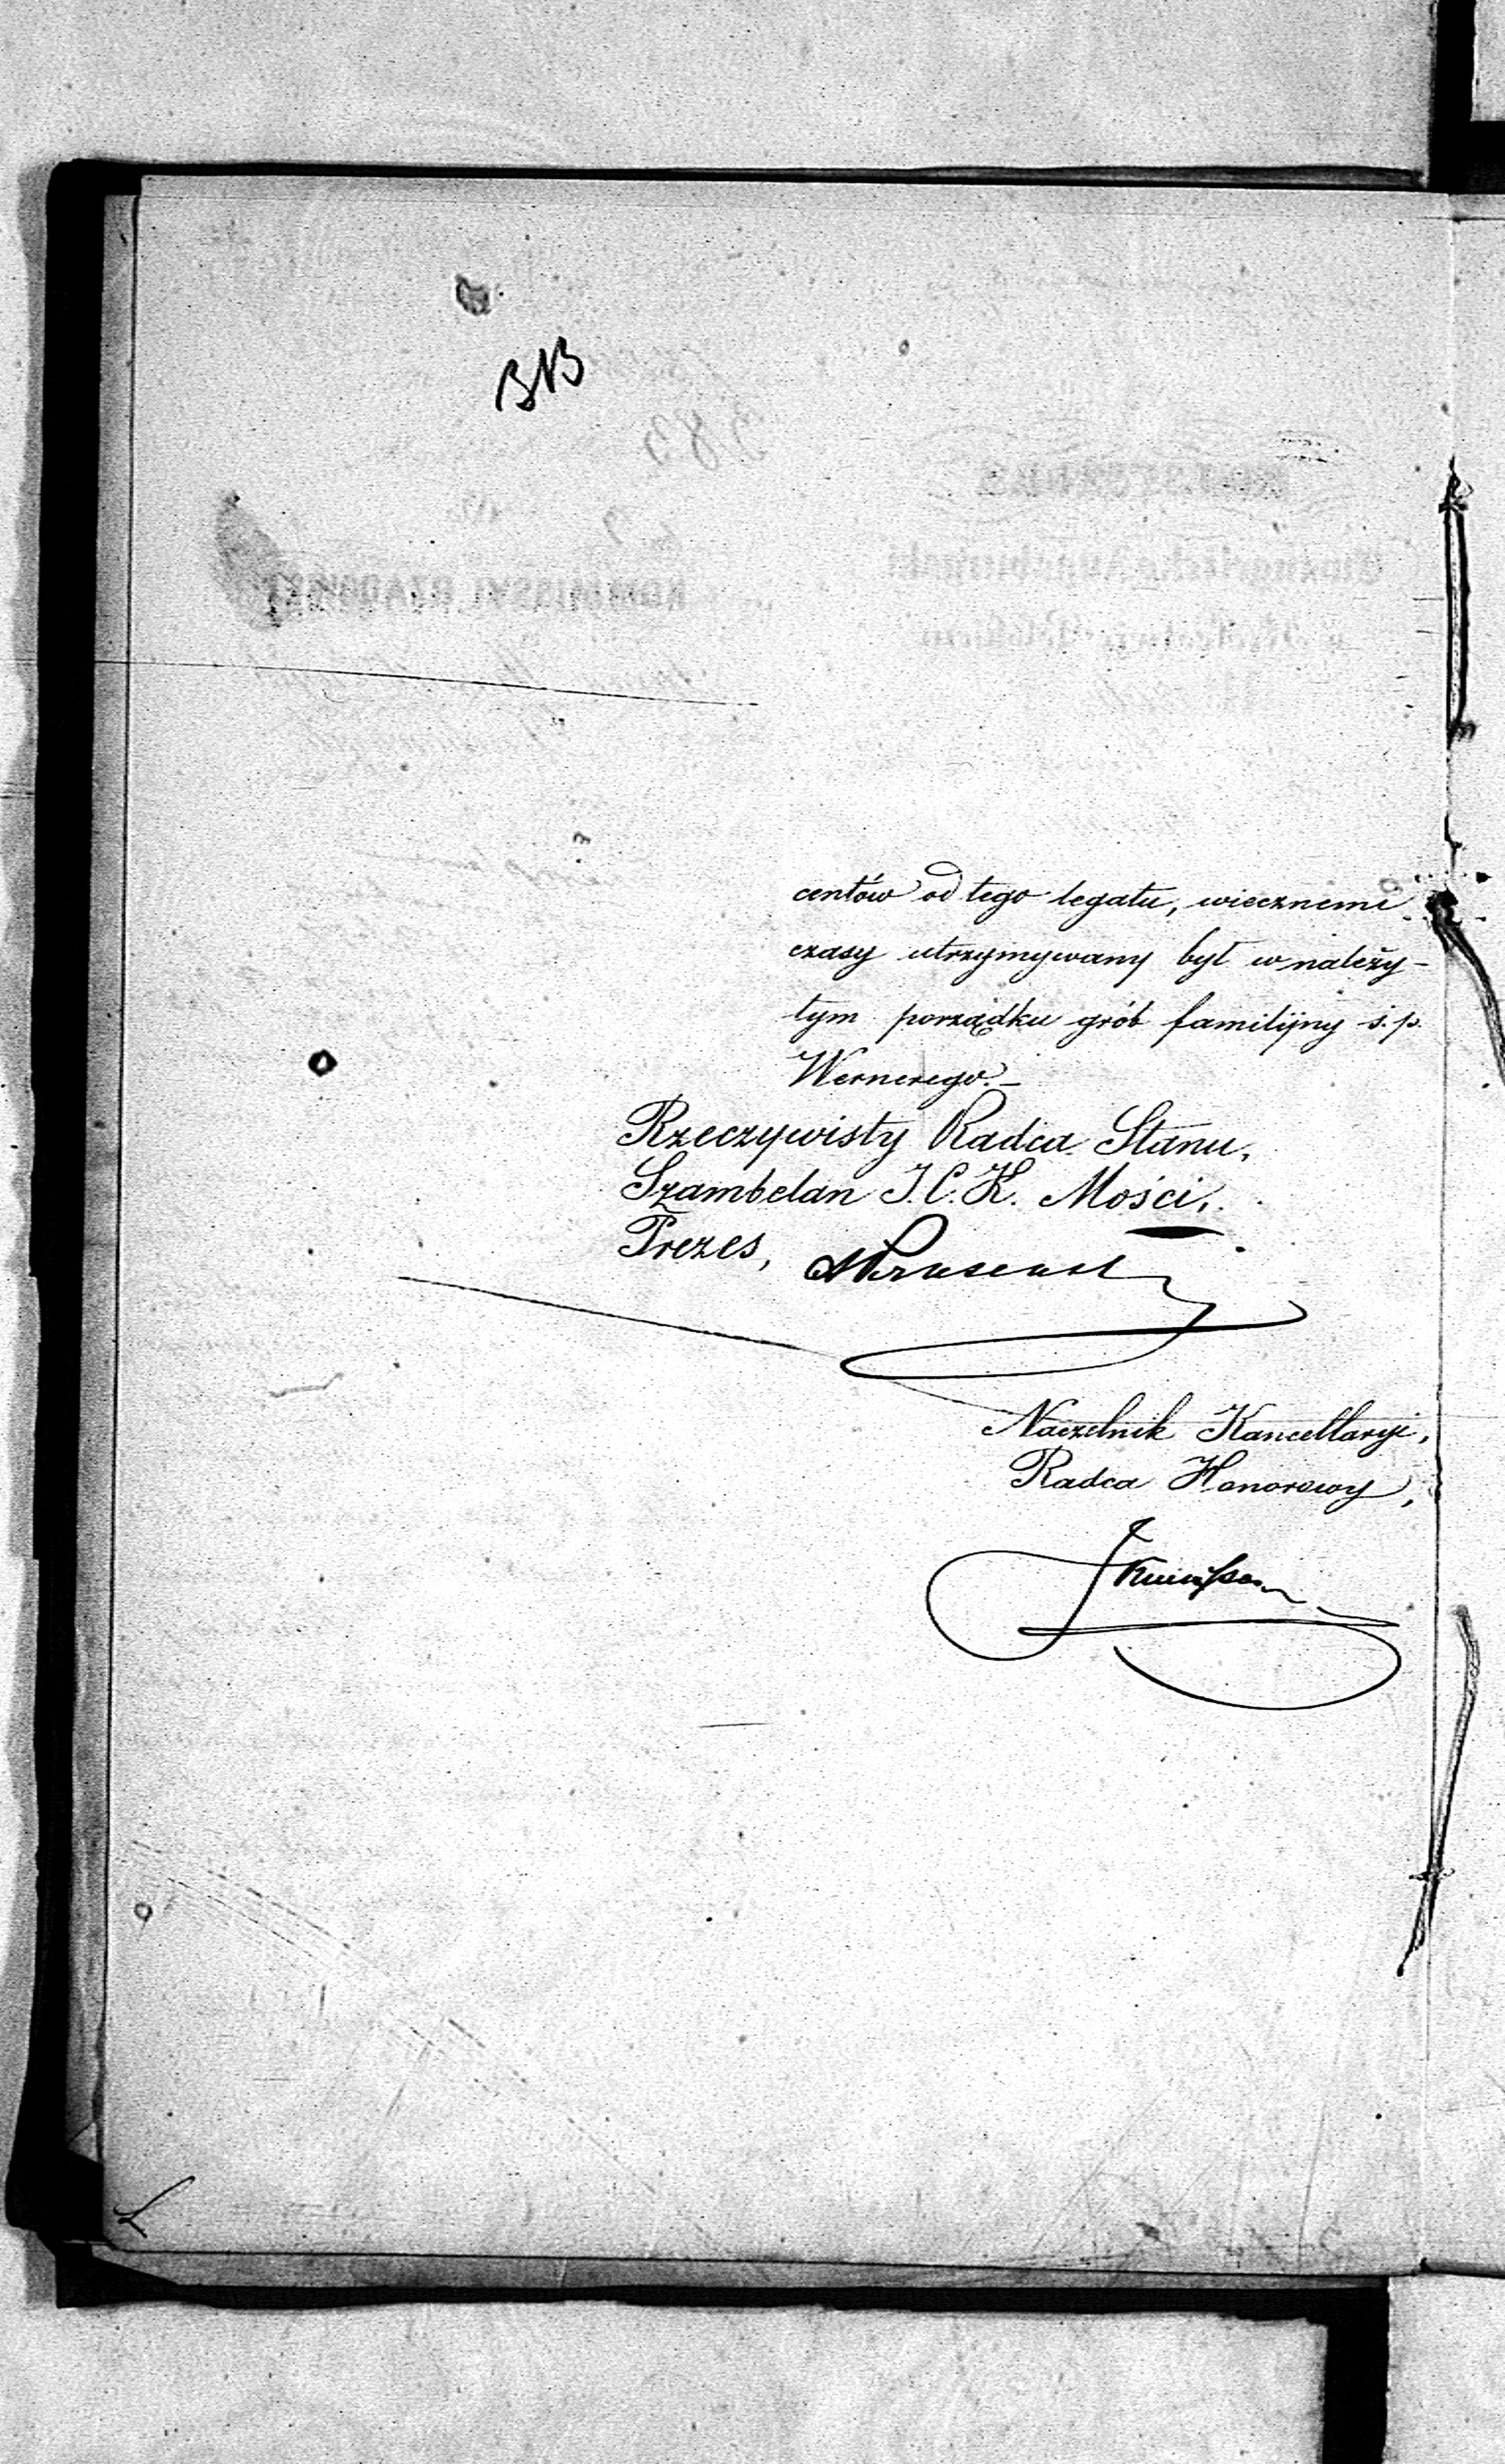 centów od tego legatu, wiecznemi
czasy utrzymywany był w należy-
tym porządku grób familijny ś.p.
Wernerego.–
Rzeczywisty Radca Stanu,
Szambelan J.C.K. Mości,
Prezes,
Naczelnik Kancellaryi,
Radca Honorowy,